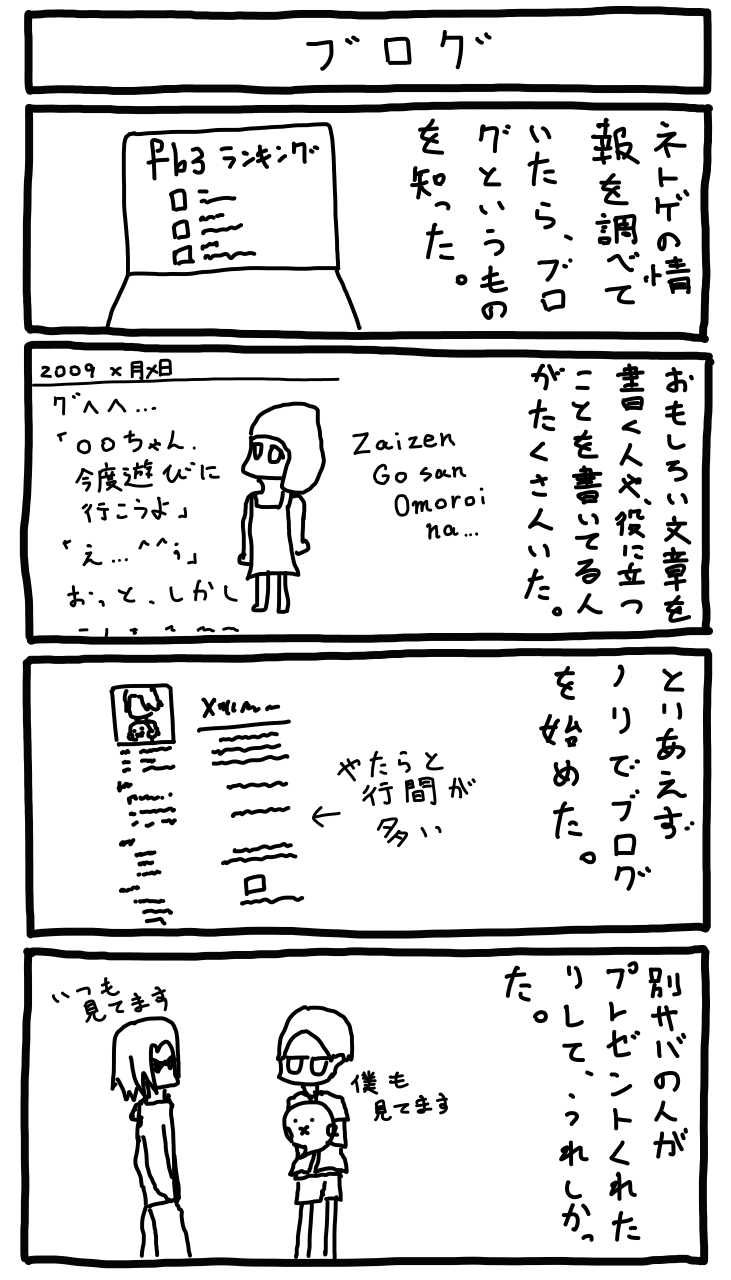 ブログ
ネトゲの情
報を調べて
いたら、ブロ
グというもの
を知った。
fb3 ランキング
おもしろい文章を
書く人や、役に立つ
ことを書いてる人
がたくさんいた。
Zaizen
Go san
Omoroi
na...
2009 x月x日
グへへ…
「○○ちゃん、
今度遊びに
行こうよ」
「え…^^;」
おっと、しかし
とりあえず
ノリでブログ
を始めた。
やたらと
行間が
多い
←
別サバの人が
プレゼントくれた
りして、うれしかっ
た。
僕も
見てます
いつも
見てます